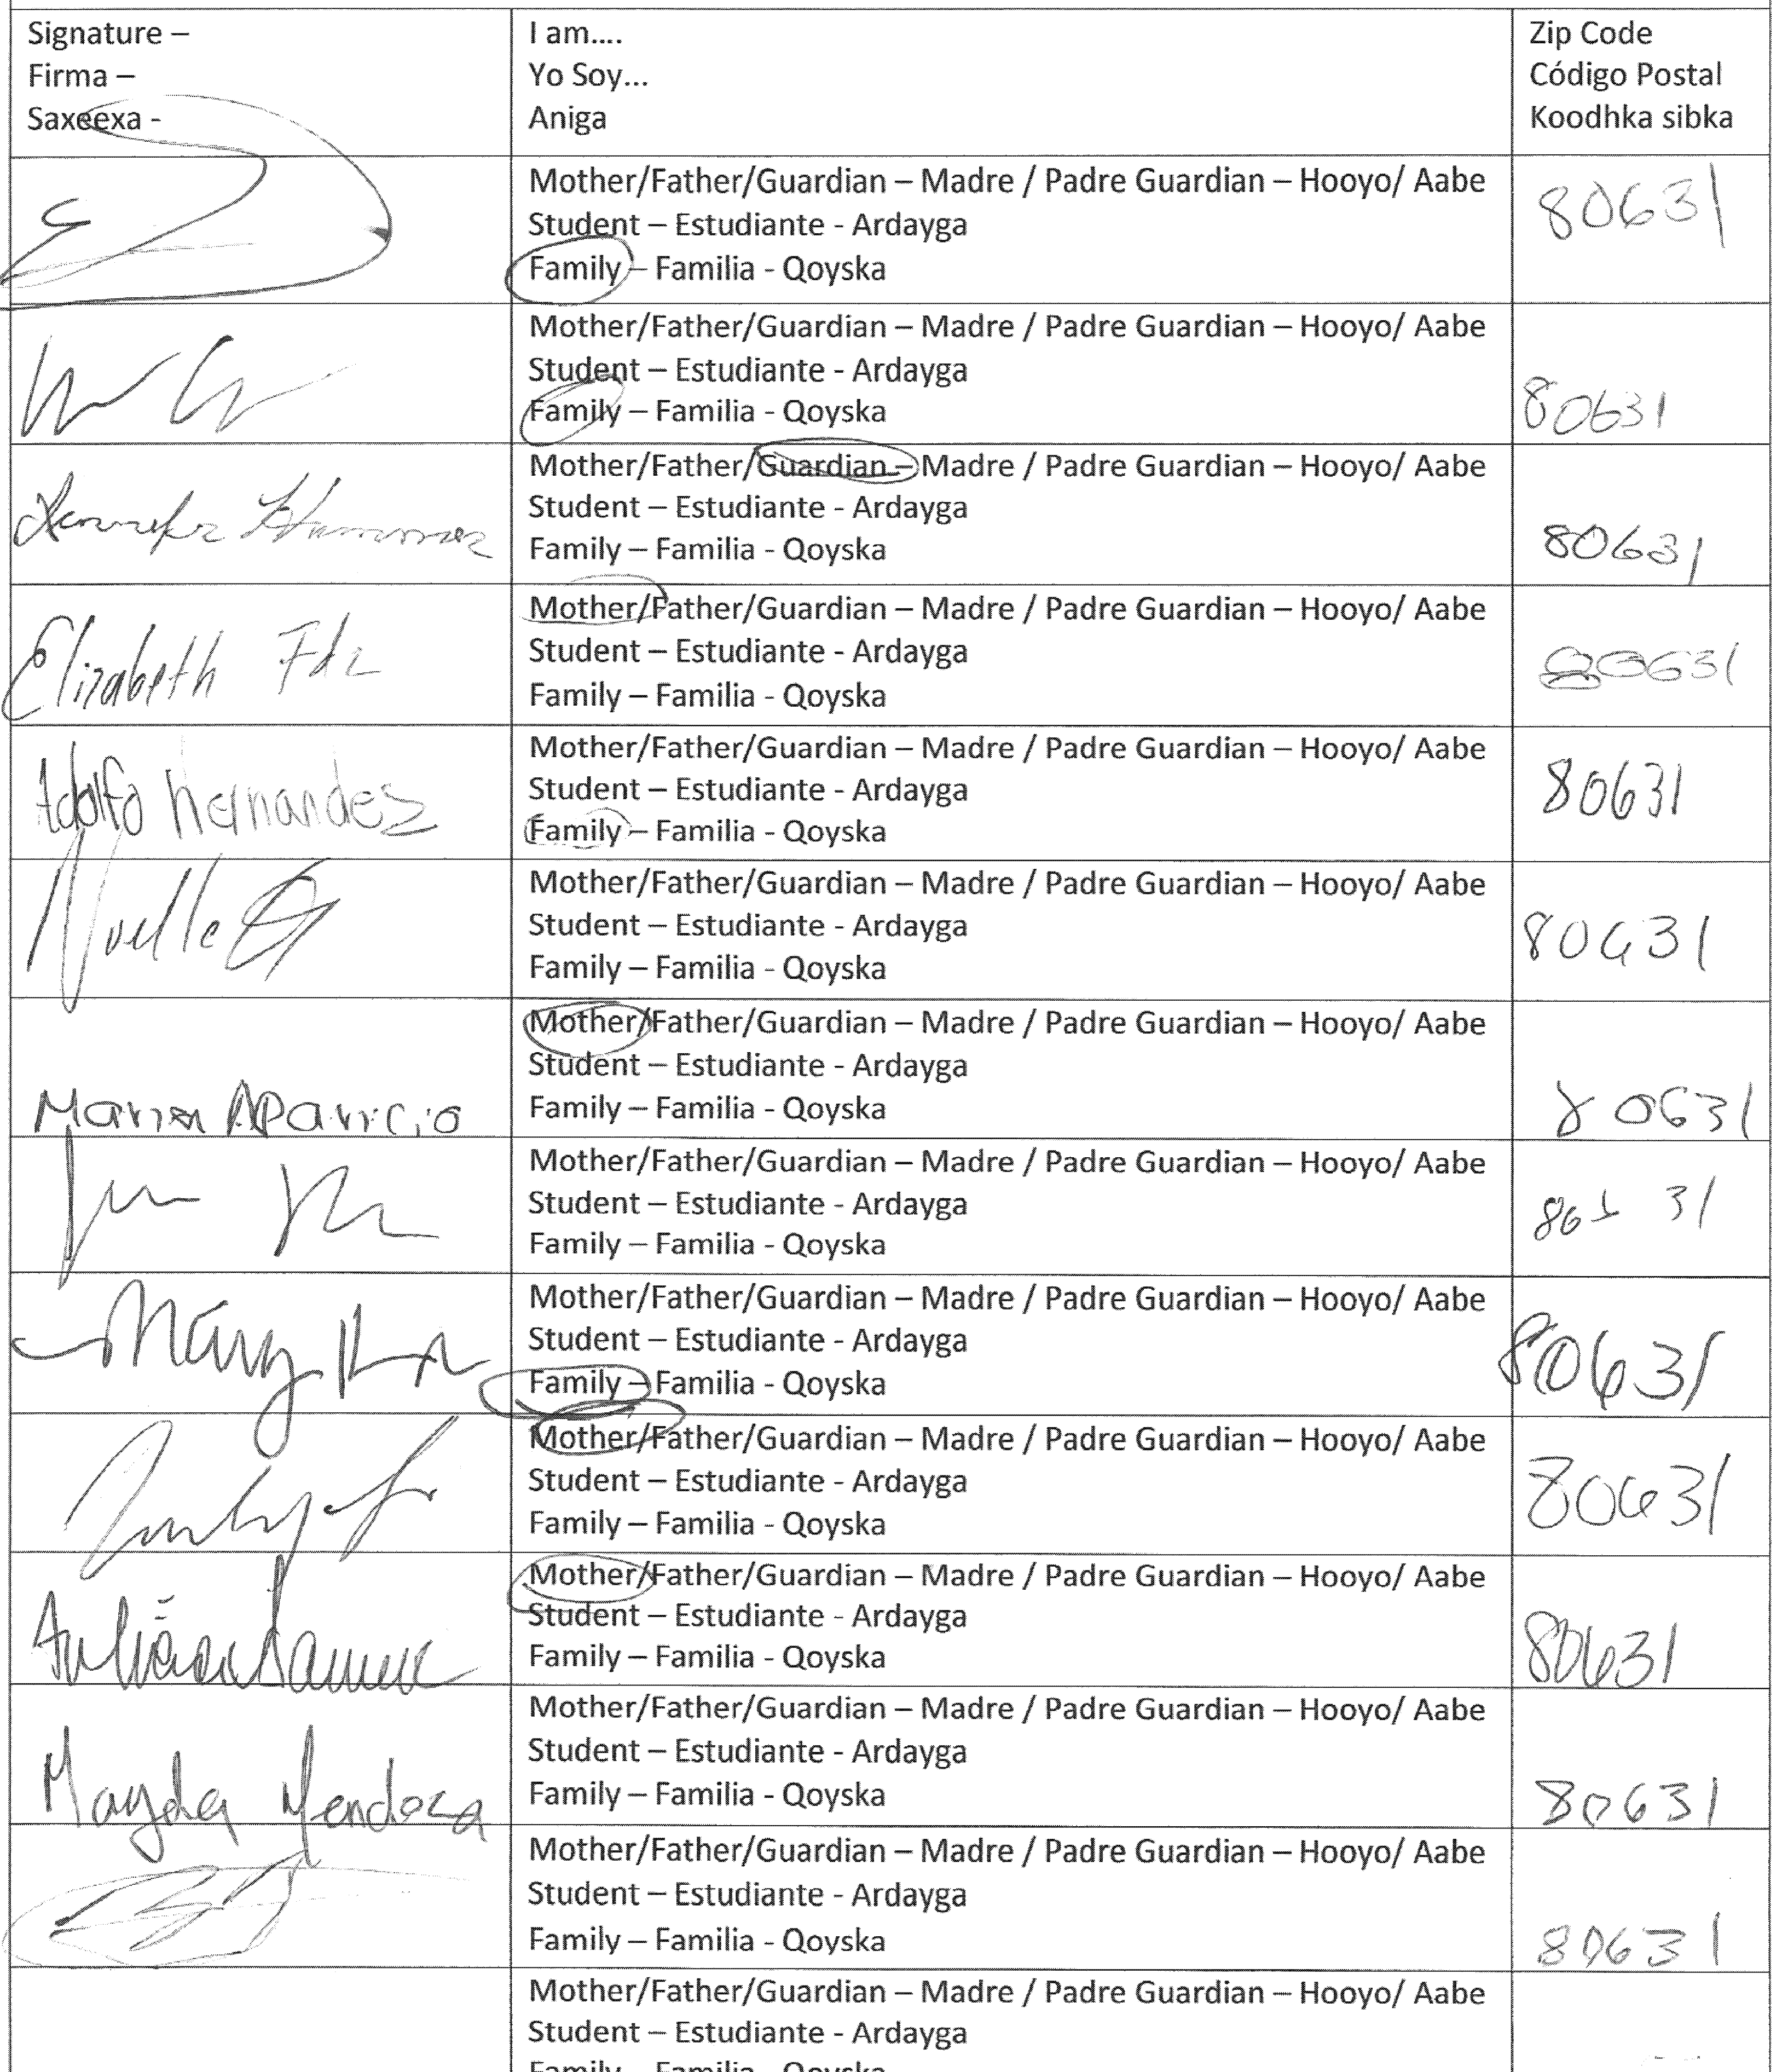 Signature –
Firma –
Saxeexa -
I am....
Yo Soy...
Aniga
Zip Code
Código Postal
Koodhka sibka
Mother/Father/Guardian – Madre / Padre Guardian – Hooyo/ Aabe
Student – Estudiante - Ardayga
Family – Familia - Qoyska
80631
Mother/Father/Guardian – Madre / Padre Guardian – Hooyo/ Aabe
Student – Estudiante - Ardayga
Family – Familia - Qoyska
80631
Mother/Father/Guardian – Madre / Padre Guardian – Hooyo/ Aabe
Student – Estudiante - Ardayga
Family – Familia - Qoyska
80631
Elizabeth Fdz
Mother/Father/Guardian – Madre / Padre Guardian – Hooyo/ Aabe
Student – Estudiante - Ardayga
Family – Familia - Qoyska
80631
Adolfo hernandez
Mother/Father/Guardian – Madre / Padre Guardian – Hooyo/ Aabe
Student – Estudiante - Ardayga
Family – Familia - Qoyska
80631
Mother/Father/Guardian – Madre / Padre Guardian – Hooyo/ Aabe
Student – Estudiante - Ardayga
Family – Familia - Qoyska
80631
Maria Aparicio
Mother/Father/Guardian – Madre / Padre Guardian – Hooyo/ Aabe
Student – Estudiante - Ardayga
Family – Familia - Qoyska
80631
Mother/Father/Guardian – Madre / Padre Guardian – Hooyo/ Aabe
Student – Estudiante - Ardayga
Family – Familia - Qoyska
Mary
Mother/Father/Guardian – Madre / Padre Guardian – Hooyo/ Aabe
Student – Estudiante - Ardayga
Family – Familia - Qoyska
80631
Mother/Father/Guardian – Madre / Padre Guardian – Hooyo/ Aabe
Student – Estudiante - Ardayga
Family – Familia - Qoyska
80631
Mother/Father/Guardian – Madre / Padre Guardian – Hooyo/ Aabe
Student – Estudiante - Ardayga
Family – Familia - Qoyska
80631
Mayda Mendoza
Mother/Father/Guardian – Madre / Padre Guardian – Hooyo/ Aabe
Student – Estudiante - Ardayga
Family – Familia - Qoyska
80631
Mother/Father/Guardian – Madre / Padre Guardian – Hooyo/ Aabe
Student – Estudiante - Ardayga
Family – Familia - Qoyska
80631
Mother/Father/Guardian – Madre / Padre Guardian – Hooyo/ Aabe
Student – Estudiante - Ardayga
Family – Familia - Qoyska